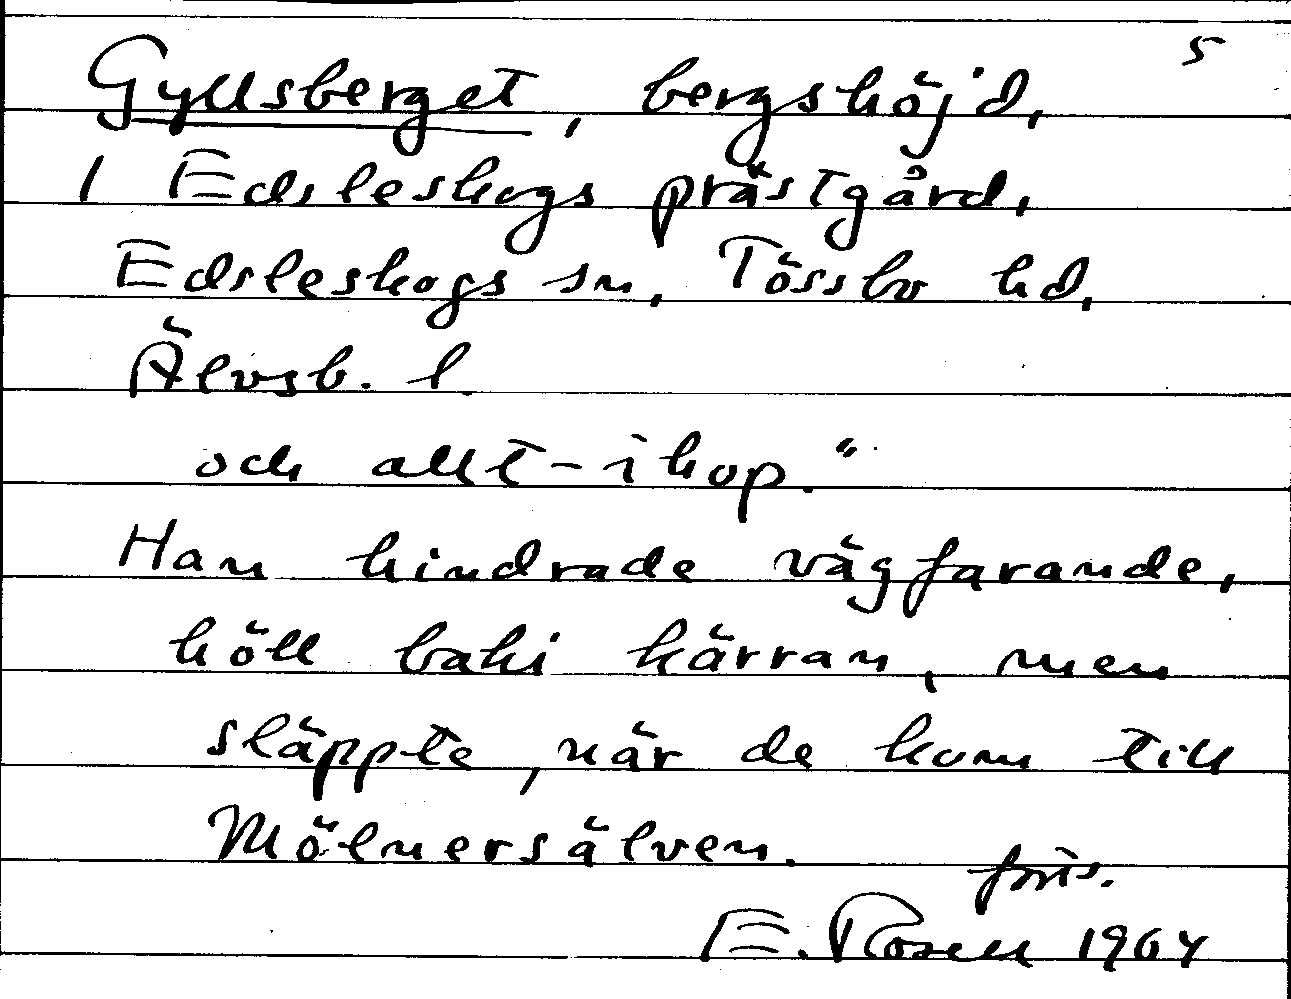 5
Gyllsberget, bergshöjd,
i Edsleskogs prästgård,
Edsleskogs sn, Tössbo hd,
Älvsb. l.
och allt-ihop."
Han hindrade vägfarande,
höll baki kärran, men
släppte, när de kom till
Mölnersälven.
forts.
E. Rosell 1964